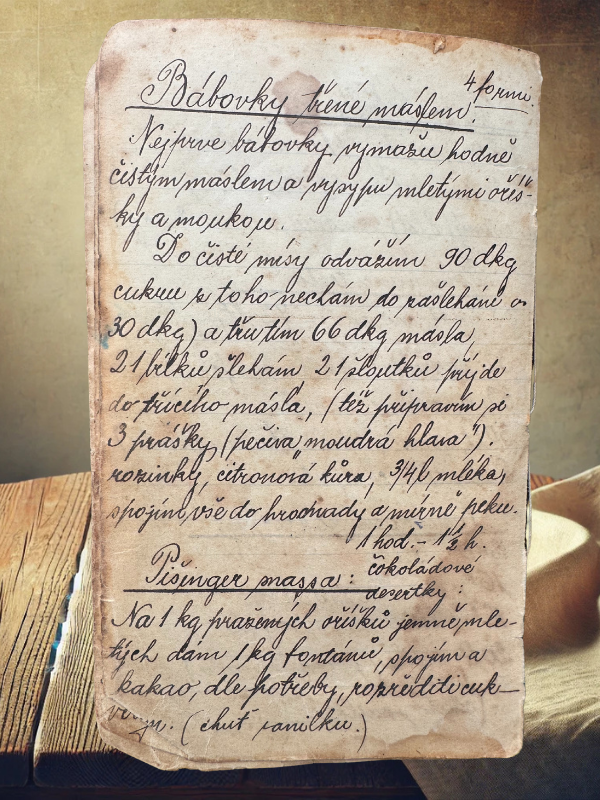 4 formi.
Bábovky třené máslem.
Nejprve bábovky vymažu hodně
čistým máslem a vysypu mletými oříš-
ky a moukou.
Do čisté mísy odvážím 90 dkg
cukru z toho nechám do rašlehání
30 dkg) a třu tím 66 dkg másla,
21 bílků šlehám, 21 žloutků přijde
do třícího másla, (též připravím si
3 prášky, (pečiva "moudrá hlava").
rozinky, citronová kůra, 3/4 l mléka,
spojím vše do hromady a mírně peku.
1 hod. - 1 1/2 h.
Pišinger massa: čokoládové
desertky:
Na 1 kg pražených oříšků jemně mle-
tých dam 1 kg fontánů, spojím a
kakao, dle potřeby, rozředití cuk-
(chuť vanilku.)